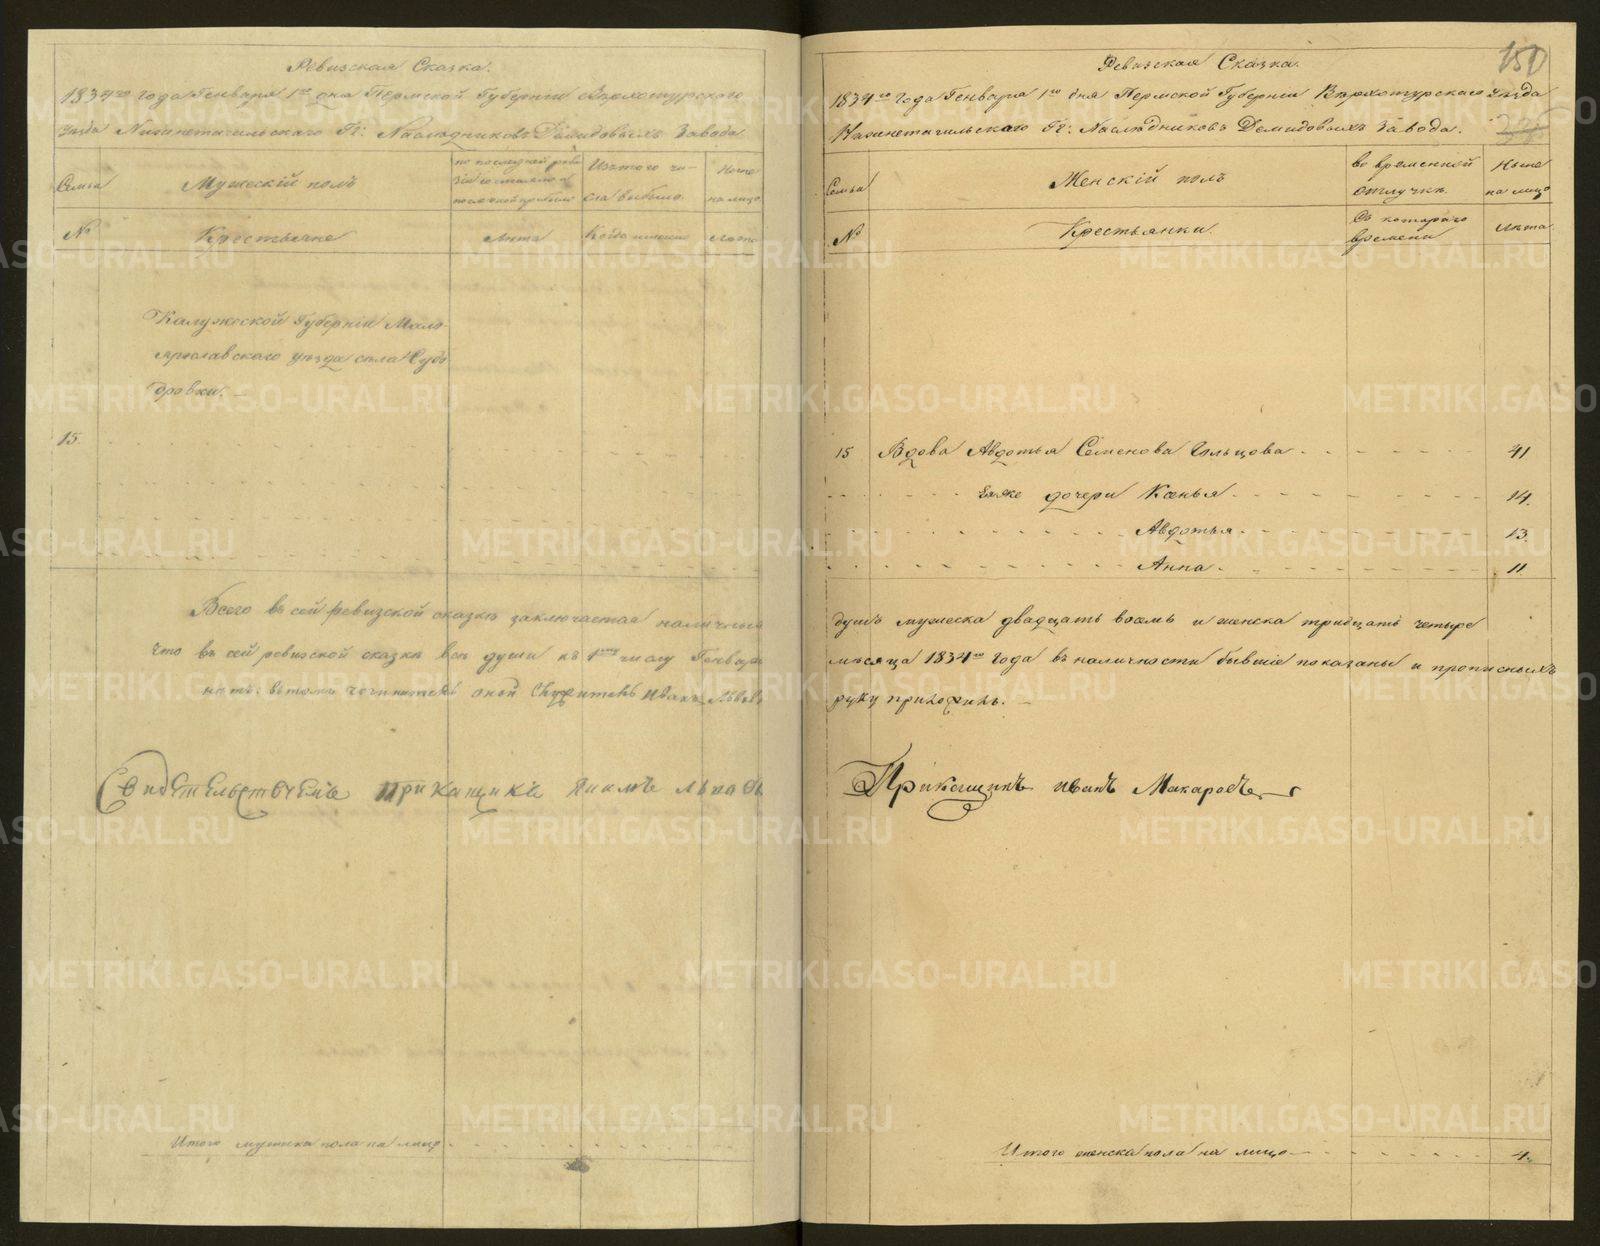 Ревизская Сказка.
1834го года Генваря 1го дня Пермской Губерніи Верхотурскаго
уезда Нижнетагильскаго Гг: Наследниковъ Демидовыхъ Завода
Семьи
Мужескій полъ
по последней реви
зіи состояло и
после оной прибыло
Изъ того чи-
сла выбыло.
Ныне
на лицо
№
Крестьяне
Лета
Когда именно
лета
Калужской Губерніи Мало-
ярославскаго уезда села
15.
Всего въ сей ревизской сказке заключается наличныхъ
что въ сей ревизской сказке все души къ 1му числу Генваря
нетъ. въ томъ
Свидетельствуемъ Прикащикъ
Итого мужеска пола на лицо
150
Ревизская Сказка.
1834го Года Генваря 1го дня Пермской Губерніи Верхотурскаго уезда
Нижнетагильскаго Гг: Наследниковъ Демидовыхъ Завода.
Семьи
Женскій полъ
во временной
отлучке.
Ныне
на лицо
№
Крестьянки.
Съ котораго
времени
Лета.
15 Вдова Авдотья Семенова Гольцова 41
Ея же дочери Ксенья 14.
Авдотья 13.
Анна 11
душъ мужеска двадцать восемь и женска тридцать четыре
месяца 1834го года въ наличности бывшіе показаны и прописныхъ
руку приложилъ.
Прикащикъ иванъ Макаровъ
Итого женска пола на лицо 4.
METRIKI.GASO-URAL.RU